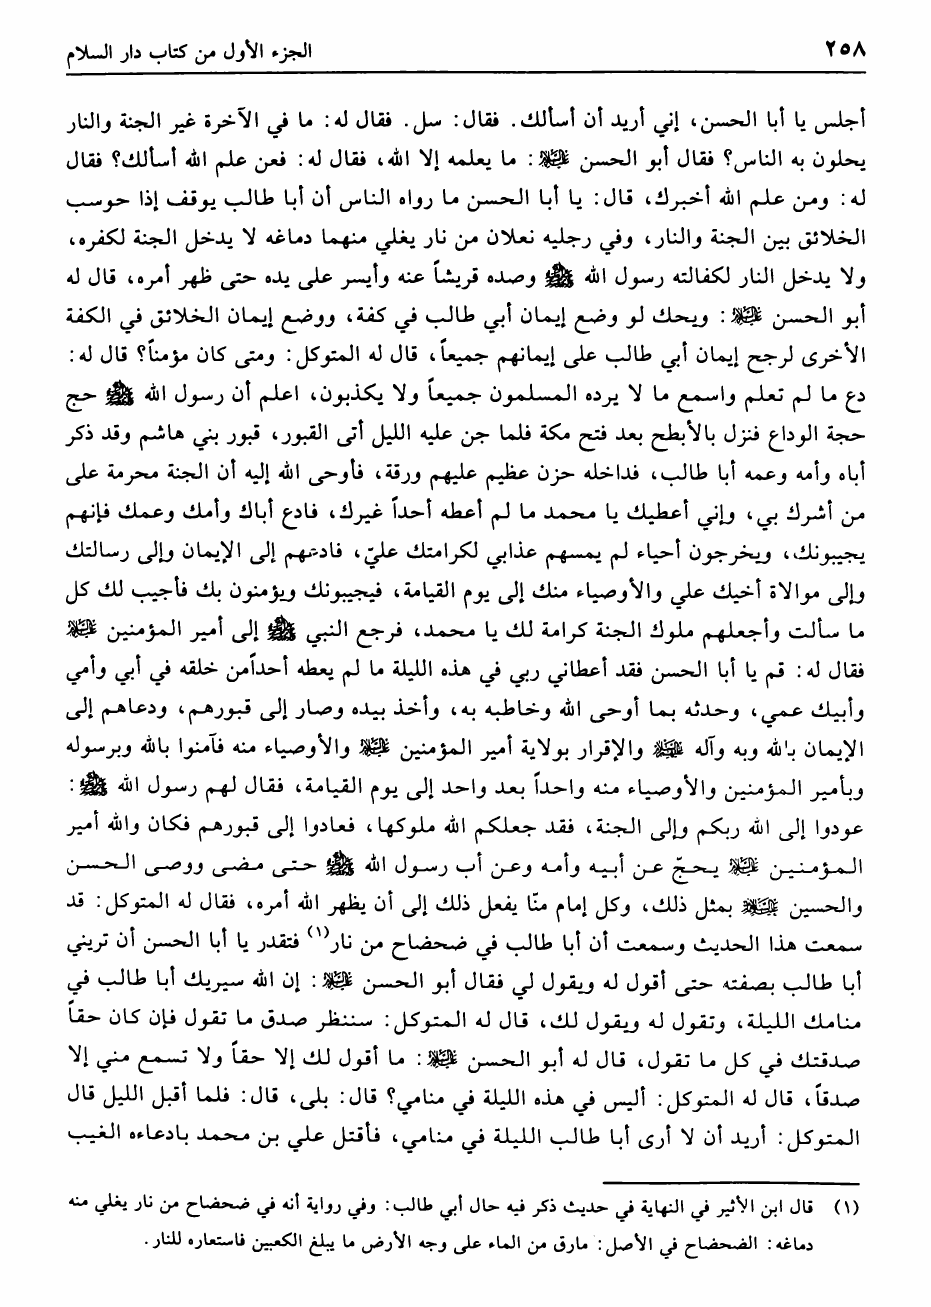 ٢٥٨
الجزء الأول من كتاب دار السلام
أجلس يا أبا الحسن، إني أريد أن أسألك. فقال: سل. فقال له: ما في الآخرة غير الجنة والنار
يحلون به الناس؟ فقال أبو الحسن عليه السلام: ما يعلمه إلا الله، فقال له: فعن علم الله أسألك؟ فقال
له: ومن علم الله أخبرك، قال: يا أبا الحسن ما رواه الناس أن أبا طالب يوقف إذا حوسب
الخلائق بين الجنة والنار، وفي رجليه نعلان من نار يغلي منهما دماغه لا يدخل الجنة لكفره،
ولا يدخل النار لكفالته رسول الله ﷺ وصده قريشاً عنه وأيسر على يده حتى ظهر أمره، قال له
أبو الحسن عليه السلام: ويحك لو وضع إيمان أبي طالب في كفة، ووضع إيمان الخلائق في الكفة
الأخرى لرجح إيمان أبي طالب على إيمانهم جميعاً، قال له المتوكل: ومتى كان مؤمناً؟ قال له:
دع ما لم تعلم واسمع ما لا يرده المسلمون جميعاً ولا يكذبون، اعلم أن رسول الله ﷺ حج
حجة الوداع فنزل بالأبطح بعد فتح مكة فلما جن عليه الليل أتى القبور، قبور بني هاشم وقد ذكر
أباه وأمه وعمه أبا طالب، فداخله حزن عظيم عليهم ورقة، فأوحى الله إليه أن الجنة محرمة على
من أشرك بي، وإني أعطيك يا محمد ما لم أعطه أحداً غيرك، فادع أباك وأمك وعمك فإنهم
يجيبونك، ويخرجون أحياء لم يمسهم عذابي لكرامتك عليّ، فادعهم إلى الإيمان وإلى رسالتك
وإلى موالاة أخيك علي والأوصياء منك إلى يوم القيامة، فيجيبونك ويؤمنون بك فأجيب لك كل
ما سألت وأجعلهم ملوك الجنة كرامة لك يا محمد، فرجع النبي ﷺ إلى أمير المؤمنين عليه السلام
فقال له: قم يا أبا الحسن فقد أعطاني ربي في هذه الليلة ما لم يعطه أحداًمن خلقه في أبي وأمي
وأبيك عمي، وحدثه بما أوحى الله وخاطبه به، وأخذ بيده وصار إلى قبورهم، ودعاهم إلى
الإيمان بالله وبه وآله عليهم السلام والإقرار بولاية أمير المؤمنين عليه السلام والأوصياء منه فآمنوا بالله وبرسوله
وبأمير المؤمنين والأوصياء منه واحداً بعد واحد إلى يوم القيامة، فقال لهم رسول الله ﷺ:
عودوا إلى الله ربكم وإلى الجنة، فقد جعلكم الله ملوكها، فعادوا إلى قبورهم فكان والله أمير
المؤمنين عليه السلام يحجّ عن أبيه وأمه وعن أب رسول الله ﷺ حتى مضى ووصى الحسن
والحسين عليهما السلام بمثل ذلك، وكل إمام منّا يفعل ذلك إلى أن يظهر الله أمره، فقال له المتوكل: قد
سمعت هذا الحديث وسمعت أن أبا طالب في ضحضاح من نار(١) فتقدر يا أبا الحسن أن تريني
أبا طالب بصفته حتى أقول له ويقول لي فقال أبو الحسن عليه السلام: إن الله سيريك أبا طالب في
منامك الليلة، وتقول له ويقول لك، قال له المتوكل: سننظر صدق ما تقول فإن كان حقاً
صدقتك في كل ما تقول، قال له أبو الحسن عليه السلام: ما أقول لك إلا حقاً ولا تسمع مني إلا
صدقاً، قال له المتوكل: أليس في هذه الليلة في منامي؟ قال: بلى، قال: فلما أقبل الليل قال
المتوكل: أريد أن لا أرى أبا طالب الليلة في منامي، فأقتل علي بن محمد بادعاءه الغيب
(١) قال ابن الأثير في النهاية في حديث ذكر فيه حال أبي طالب: وفي رواية أنه في ضحضاح من نار يغلي منه
دماغه: الضحضاح في الأصل: مارق من الماء على وجه الأرض ما يبلغ الكعبين فاستعاره للنار.